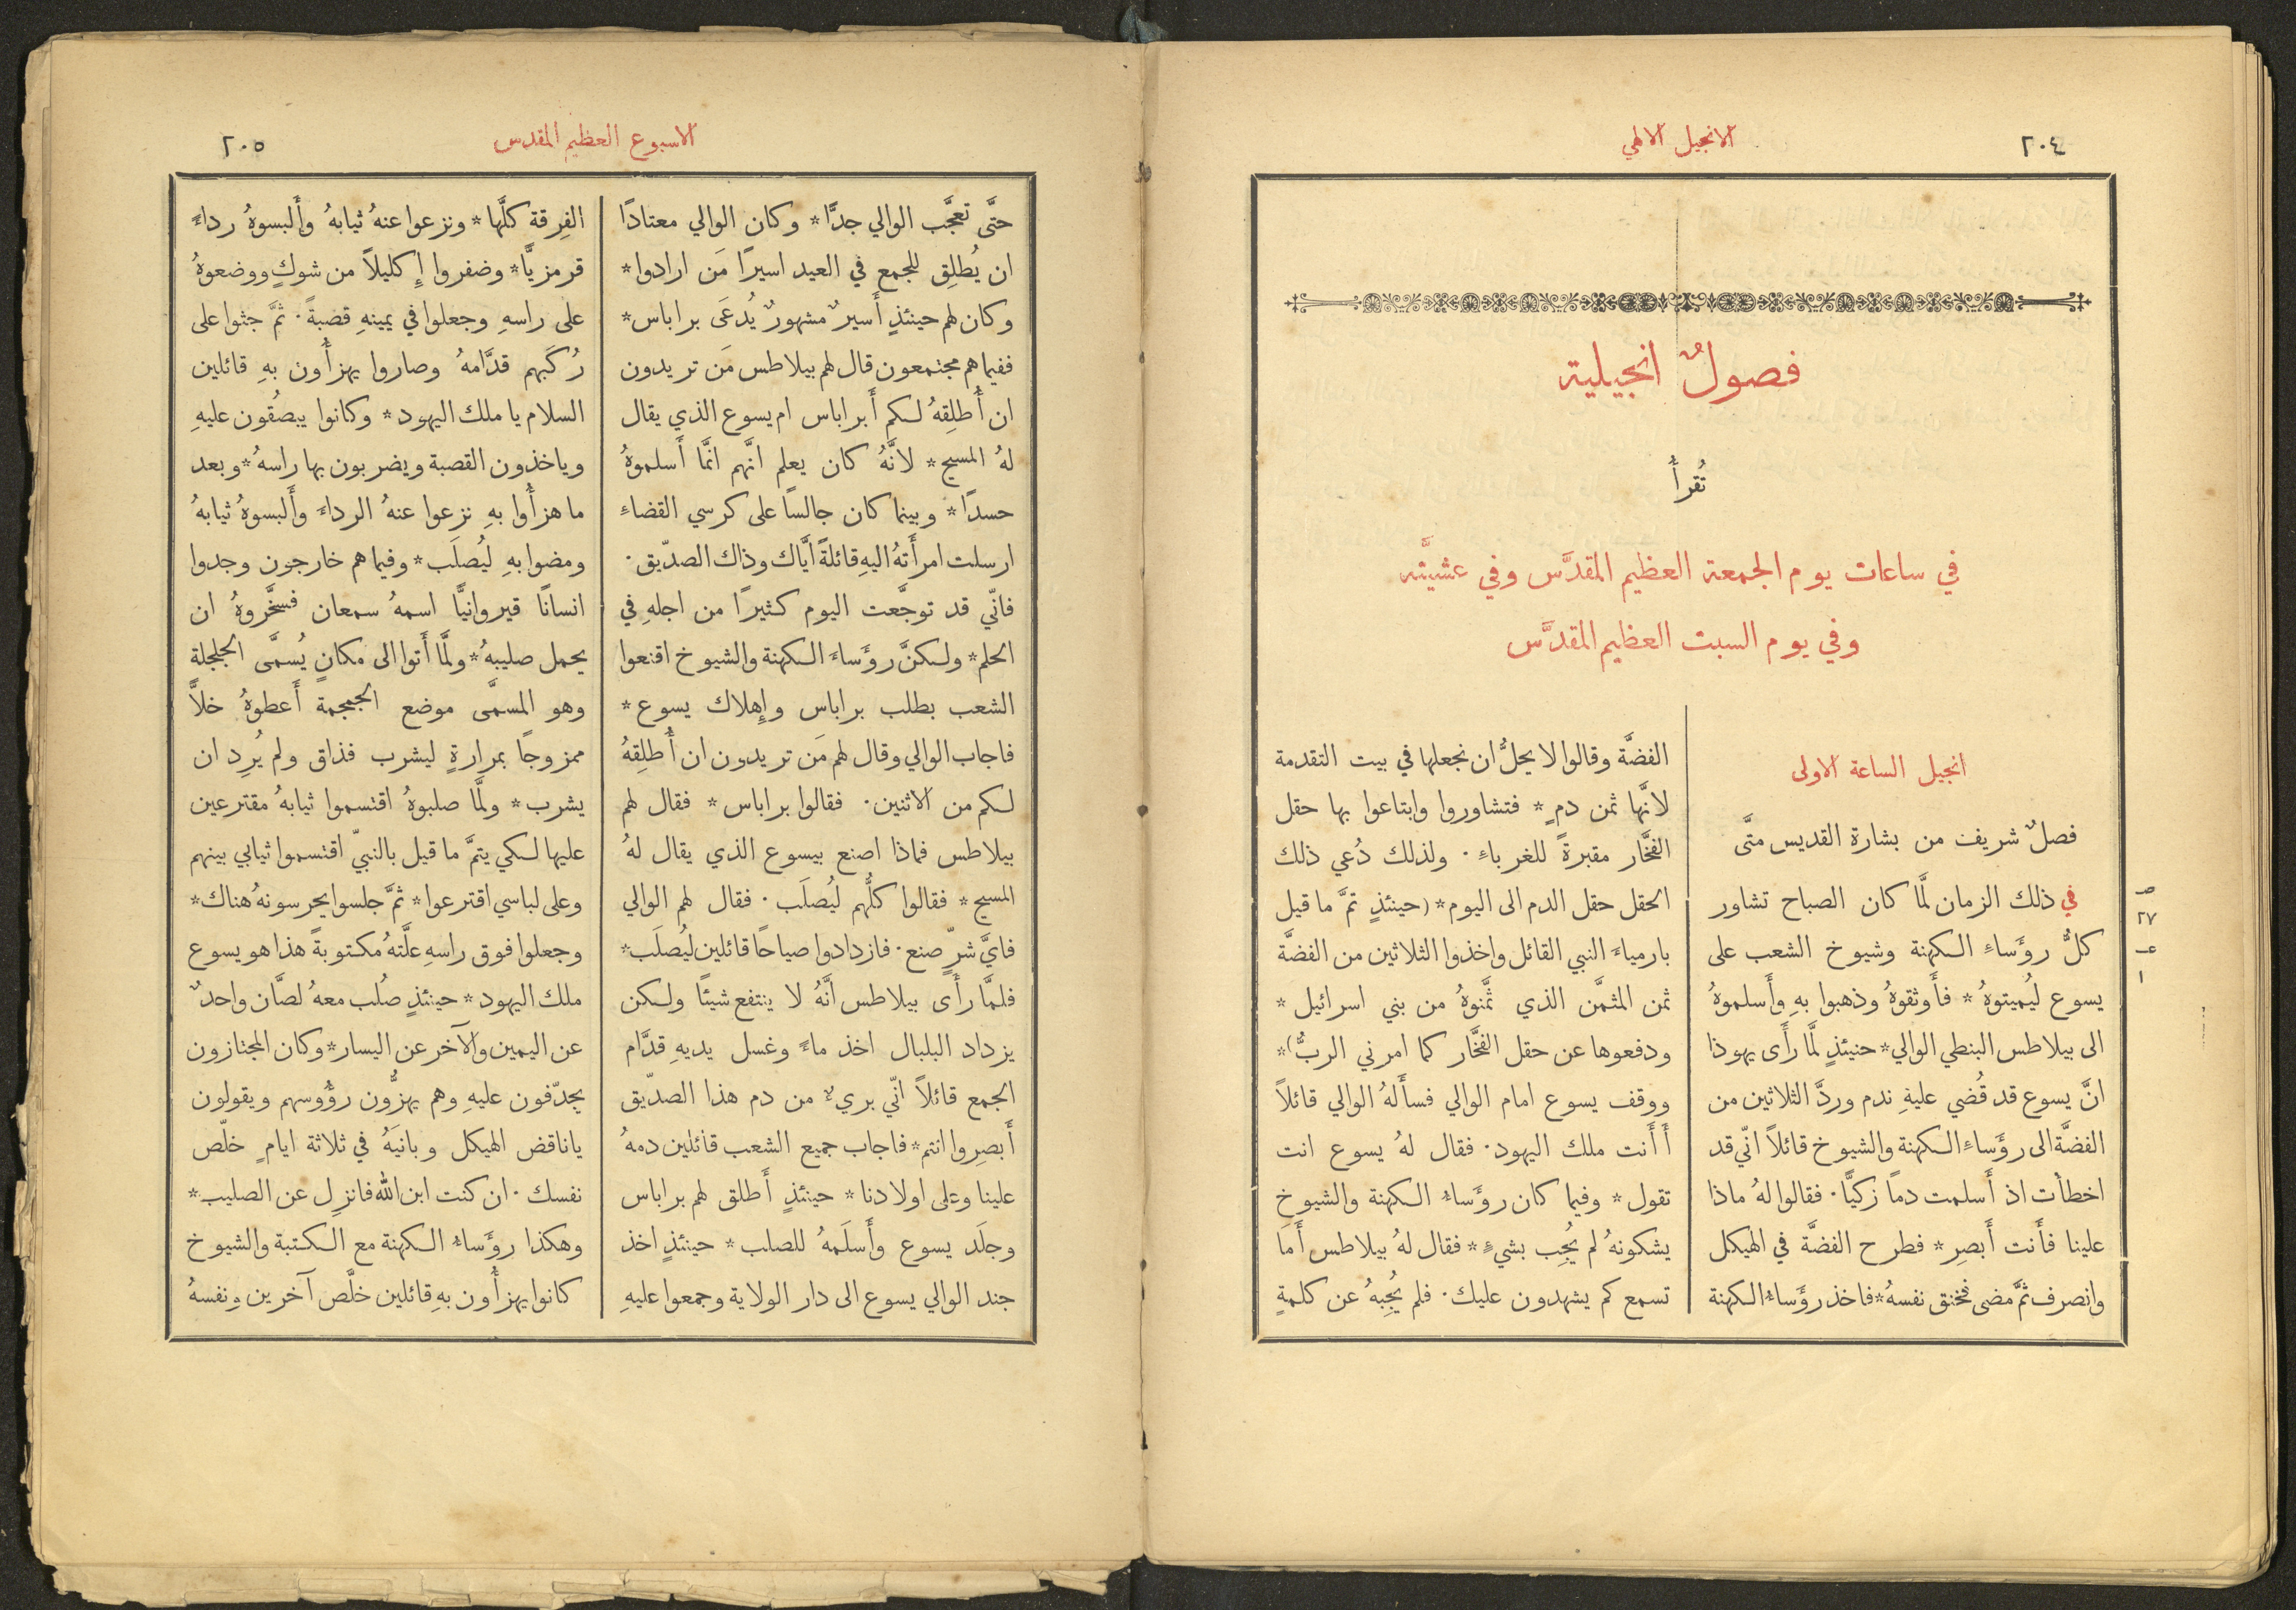 ٢٠٤
الانجيل الالهي
فصولٌ انجيلية
تُقرأُ
في ساعات يوم الجمعة العظيم المقدَّس وفي عشيَّته
وفي يوم السبت العظيم المقدَّس
انجيل الساعة الاولى
فصلٌ شريف من بشارة القديس متَّى
ص
٢٧
عـ
١
في ذلك الزمان لمَّا كان الصباح تشاور
كلُّ رؤَساءِ الكهنة وشيوخ الشعب على
يسوع ليُميتوهُ * فأَوثقوهُ وذهبوا بهِ وأَسلموهُ
الى بيلاطس البنطي الوالي * حنيئذٍ لمَّا رأَى يهوذا
انَّ يسوع قد قُضي عليهِ ندم وردَّ الثلاثين من
الفضَّة الى رؤَساءِ الكهنة والشيوخ قائلاً انّي قد
اخطأت اذ أَسلمت دمًا زكيًّا . فقالوا لهُ ماذا
علينا فأَنت أَبصِر * فطرح الفضَّة في الهيكل
وانصرف ثمَّ مضى فخنق نفسهُ * فاخذ رؤَساءُ الكهنة
الفضَّة وقالوا لا يحلُّ ان نجعلها في بيت التقدمة
لانَّها ثمن دمٍ * فتشاوروا وابتاعوا بها حقل
الفخَّار مقبرةً للغرباءِ . ولذلك دُعي ذلك
الحقل حقل الدم الى اليوم * (حينئذٍ تمَّ ما قيل
بارمياءَ النبي القائل واخذوا الثلاثين من الفضَّة
ثمن المثمَّن الذي ثمَّنوهُ من بني اسرائيل *
ودفعوها عن حقل الفخَّار كما امرني الربُّ) *
ووقف يسوع امام الوالي فسأَلهُ الوالي قائلاً
أَأَنت ملك اليهود . فقال لهُ يسوع انت
تقول * وفيما كان رؤَساءُ الكهنة والشيوخ
يشكونهُ لم يُجِب بشيءٍ * فقال لهُ بيلاطس أَمَا
تسمع كم يشهدون عليك . فلم يُجِبهُ عن كلمةٍ
الاسبوع العظيم المقدس
٢٠٥
حتَّى تعجَّب الوالي جدًّا * وكان الوالي معتادًا
ان يُطلِق للجمع في العيد اسيرًا مَن ارادوا *
وكان لهم حينئذٍ أَسيرٌ مشهورٌ يُدعَى براباس *
ففيما هم مجتمعون قال لهم بيلاطس مَن تريدون
ان أُطلِقهُ لكم أَبراباس ام يسوع الذي يقال
لهُ المسيح * لانَّهُ كان يعلم انَّهم انَّما أَسلموهُ
حسدًا * وبينما كان جالسًا على كرسي القضاءِ
ارسلت امرأَتهُ اليهِ قائلةً ايَّاك وذاك الصدّيق .
فانّي قد توجَّعت اليوم كثيرًا من اجلهِ في
الحلم * ولكنَّ رؤَساءَ الكهنة والشيوخ اقنعوا
الشعب بطلب براباس وإِهلاك يسوع *
فاجاب الوالي وقال لهم مَن تريدون ان أُطلِقهُ
لكم من الاثنين . فقالوا براباس * فقال لهم
بيلاطس فماذا اصنع بيسوع الذي يقال لهُ
المسيح * فقالوا كلُّهم ليُصلَب . فقال لهم الوالي
فايَّ شرٍّ صنع . فازدادوا صياحًا قائلين ليُصلَب *
فلمَّا رأَى بيلاطس انَّهُ لا ينتفع شيئًا ولكن
يزداد البلبال اخذ ماءً وغسل يديهِ قدَّام
الجمع قائلاً انّي بريءٌ من دم هذا الصدّيق
أَبصِروا انتم * فاجاب جميع الشعب قائلين دمهُ
علينا وعلى اولادنا * حينئذٍ أَطلق لهم براباس
وجلَد يسوع وأَسلَمهُ للصلب * حينئذٍ اخذ
جند الوالي يسوع الى دار الولاية وجمعوا عليهِ
الفِرقة كلَّها * ونزعوا عنهُ ثيابهُ وأَلبسوهُ رداءً
قرمزيًّا * وضفروا إِكليلاً من شوكٍ ووضعوهُ
على راسهِ وجعلوا في يمينهِ قصبةً . ثمَّ جثوا على
رُكَبهم قدَّامهُ وصاروا يهزأُون بهِ قائلين
السلام يا ملك اليهود * وكانوا يبصُقون عليهِ
وياخذون القصبة ويضربون بها راسهُ * وبعد
ما هزأُوا بهِ نزعوا عنهُ الرداءَ وأَلبسوهُ ثيابهُ
ومضوا بهِ ليُصلَب * وفيما هم خارجون وجدوا
انسانًا قيروانيًّا اسمهُ سمعان فسخَّروهُ ان
يحمل صليبهُ * ولمَّا أَتوا الى مكانٍ يُسمَّى الجلجلة
وهو المسمَّى موضع الجمجمة أَعطوهُ خلاًّ
ممزوجًا بمرارةٍ ليشرب فذاق ولم يُرِد ان
يشرب * ولمَّا صلبوهُ اقتسموا ثيابهُ مقترعين
عليها لكي يتمَّ ما قيل بالنبيّ اقتسموا ثيابي بينهم
وعلى لباسي اقترعوا * ثمَّ جلسوا يحرسونهُ هناك *
وجعلوا فوق راسهِ علَّتهُ مكتوبةً هذا هو يسوع
ملك اليهود * حينئذٍ صُلب معهُ لصَّان واحدٌ
عن اليمين والآخر عن اليسار * وكان المجتازون
يجدّفون عليهِ وهم يهزُّون رؤُوسهم ويقولون
يا ناقض الهيكل وبانيَهُ في ثلاثة ايامٍ خلّص
نفسك . ان كنت ابن الله فانزل عن الصليب *
وهكذا رؤَساءُ الكهنة مع الكتبة والشيوخ
كانوا يهزأُون بهِ قائلين خلَّص آخرين ونفسهُ